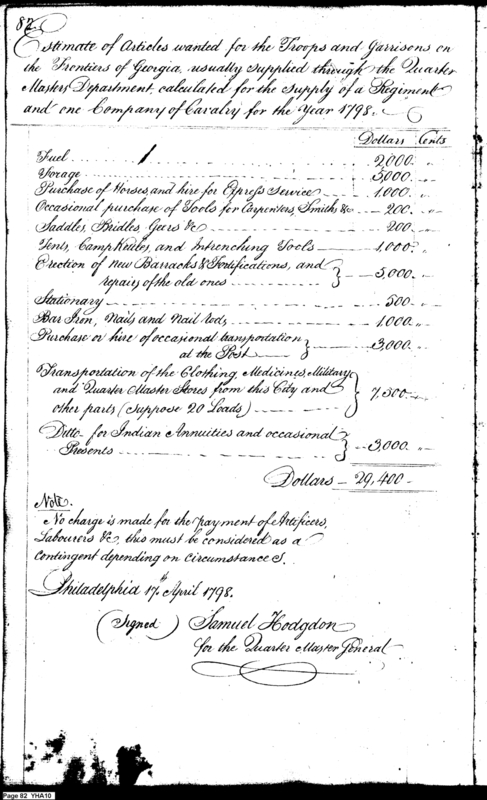 82
Estimate of Articles wanted for the Troops and Garrisons on
the Frontiers of Georgia usually supplied through the Quarter
Masters Department, calculated for the supply of a Regiment
and one Company of Cavalry for the Year 1798.
Dollars Cents
Fuel 2,000. "
Forage 5,000. "
Purchase of Horses, and hire for Express Service 1,000 "
Occasional purchase of Tools for Carpenters, Smiths &c 200. "
Saddles, Bridles, Geers &c 200 "
Tents, Camp Kettles, and Intrenching Tools 1,000. "
Erection of new Barracks & Fortifications, and
repairs of the old ones 5,000. "
Stationary 500 "
Bar Iron, Nails and Nail Rods, 1,000. "
Purchase or hire of occasional transportation
at the Post 3,000 "
Transportation of the Clothing Medicines, Military
and Quarter Master Stores from this City and
other parts (Suppose 20 Loads) 7,500 "
Ditto for Indian Annuities and occasional
Presents 3,000. "
Dollars 29,400
Note.
No charge is made for the payment of Artificers,
Labourers &c, this must be considered as a
Contingent depending on Circumstances.
Philadelphia 17th April 1798.
(Signed) Samuel Hodgdon
for the Quarter Master General
Page 82 YHA10